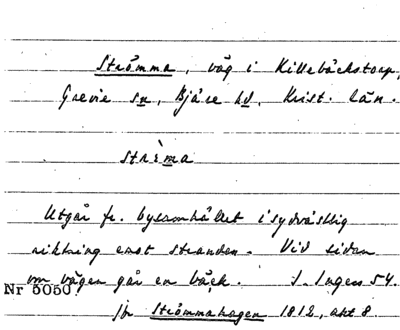 Strömma, väg i Killebäckstorp,
Grevie sn, Bjäre hd, Krist. län.
strèma
Utgår fr. bysamhället i sydvästlig
riktning emot stranden. Vid sidan
om vägen går en bäck. J. Ingers 54.
Nr 5050.
jfr Strömmahagen 1812, akt 8.